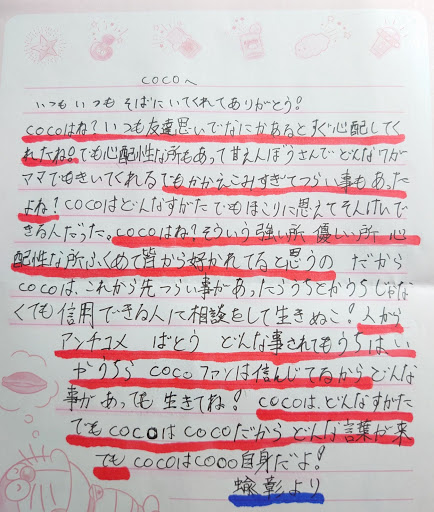 COCOへ
いつもいつもそばにいてくれてありがとう!
COCOはね?いつも友達思いでなにかあるとすぐ心配してく
れたね。でも心配性な所もあって甘えんぼうさんでどんなワガ
ママでもきいてくれるでもかかえこみすぎてつらい事もあった
よね?COCOはどんなすがたでもほこりに思えてそんけいで
きる人だった。COCOはね?そういう強い所優しい所心
配性な所ふくめて皆から好かれてると思うの だから
COCOは、これから先つらい事があったらうちとかうちじゃな
くても信用できる人に相談をして生きぬこ!人から
アンチコメ ばとう どんな事されてもうちはい
やうちら COCOファンは信んじてるからどんな
事があっても生きてね! COCOは、どんなすがた
でもCOCOはCOCOだからどんな言葉が来
てもCOCOはCOOO自身だよ!
彰より